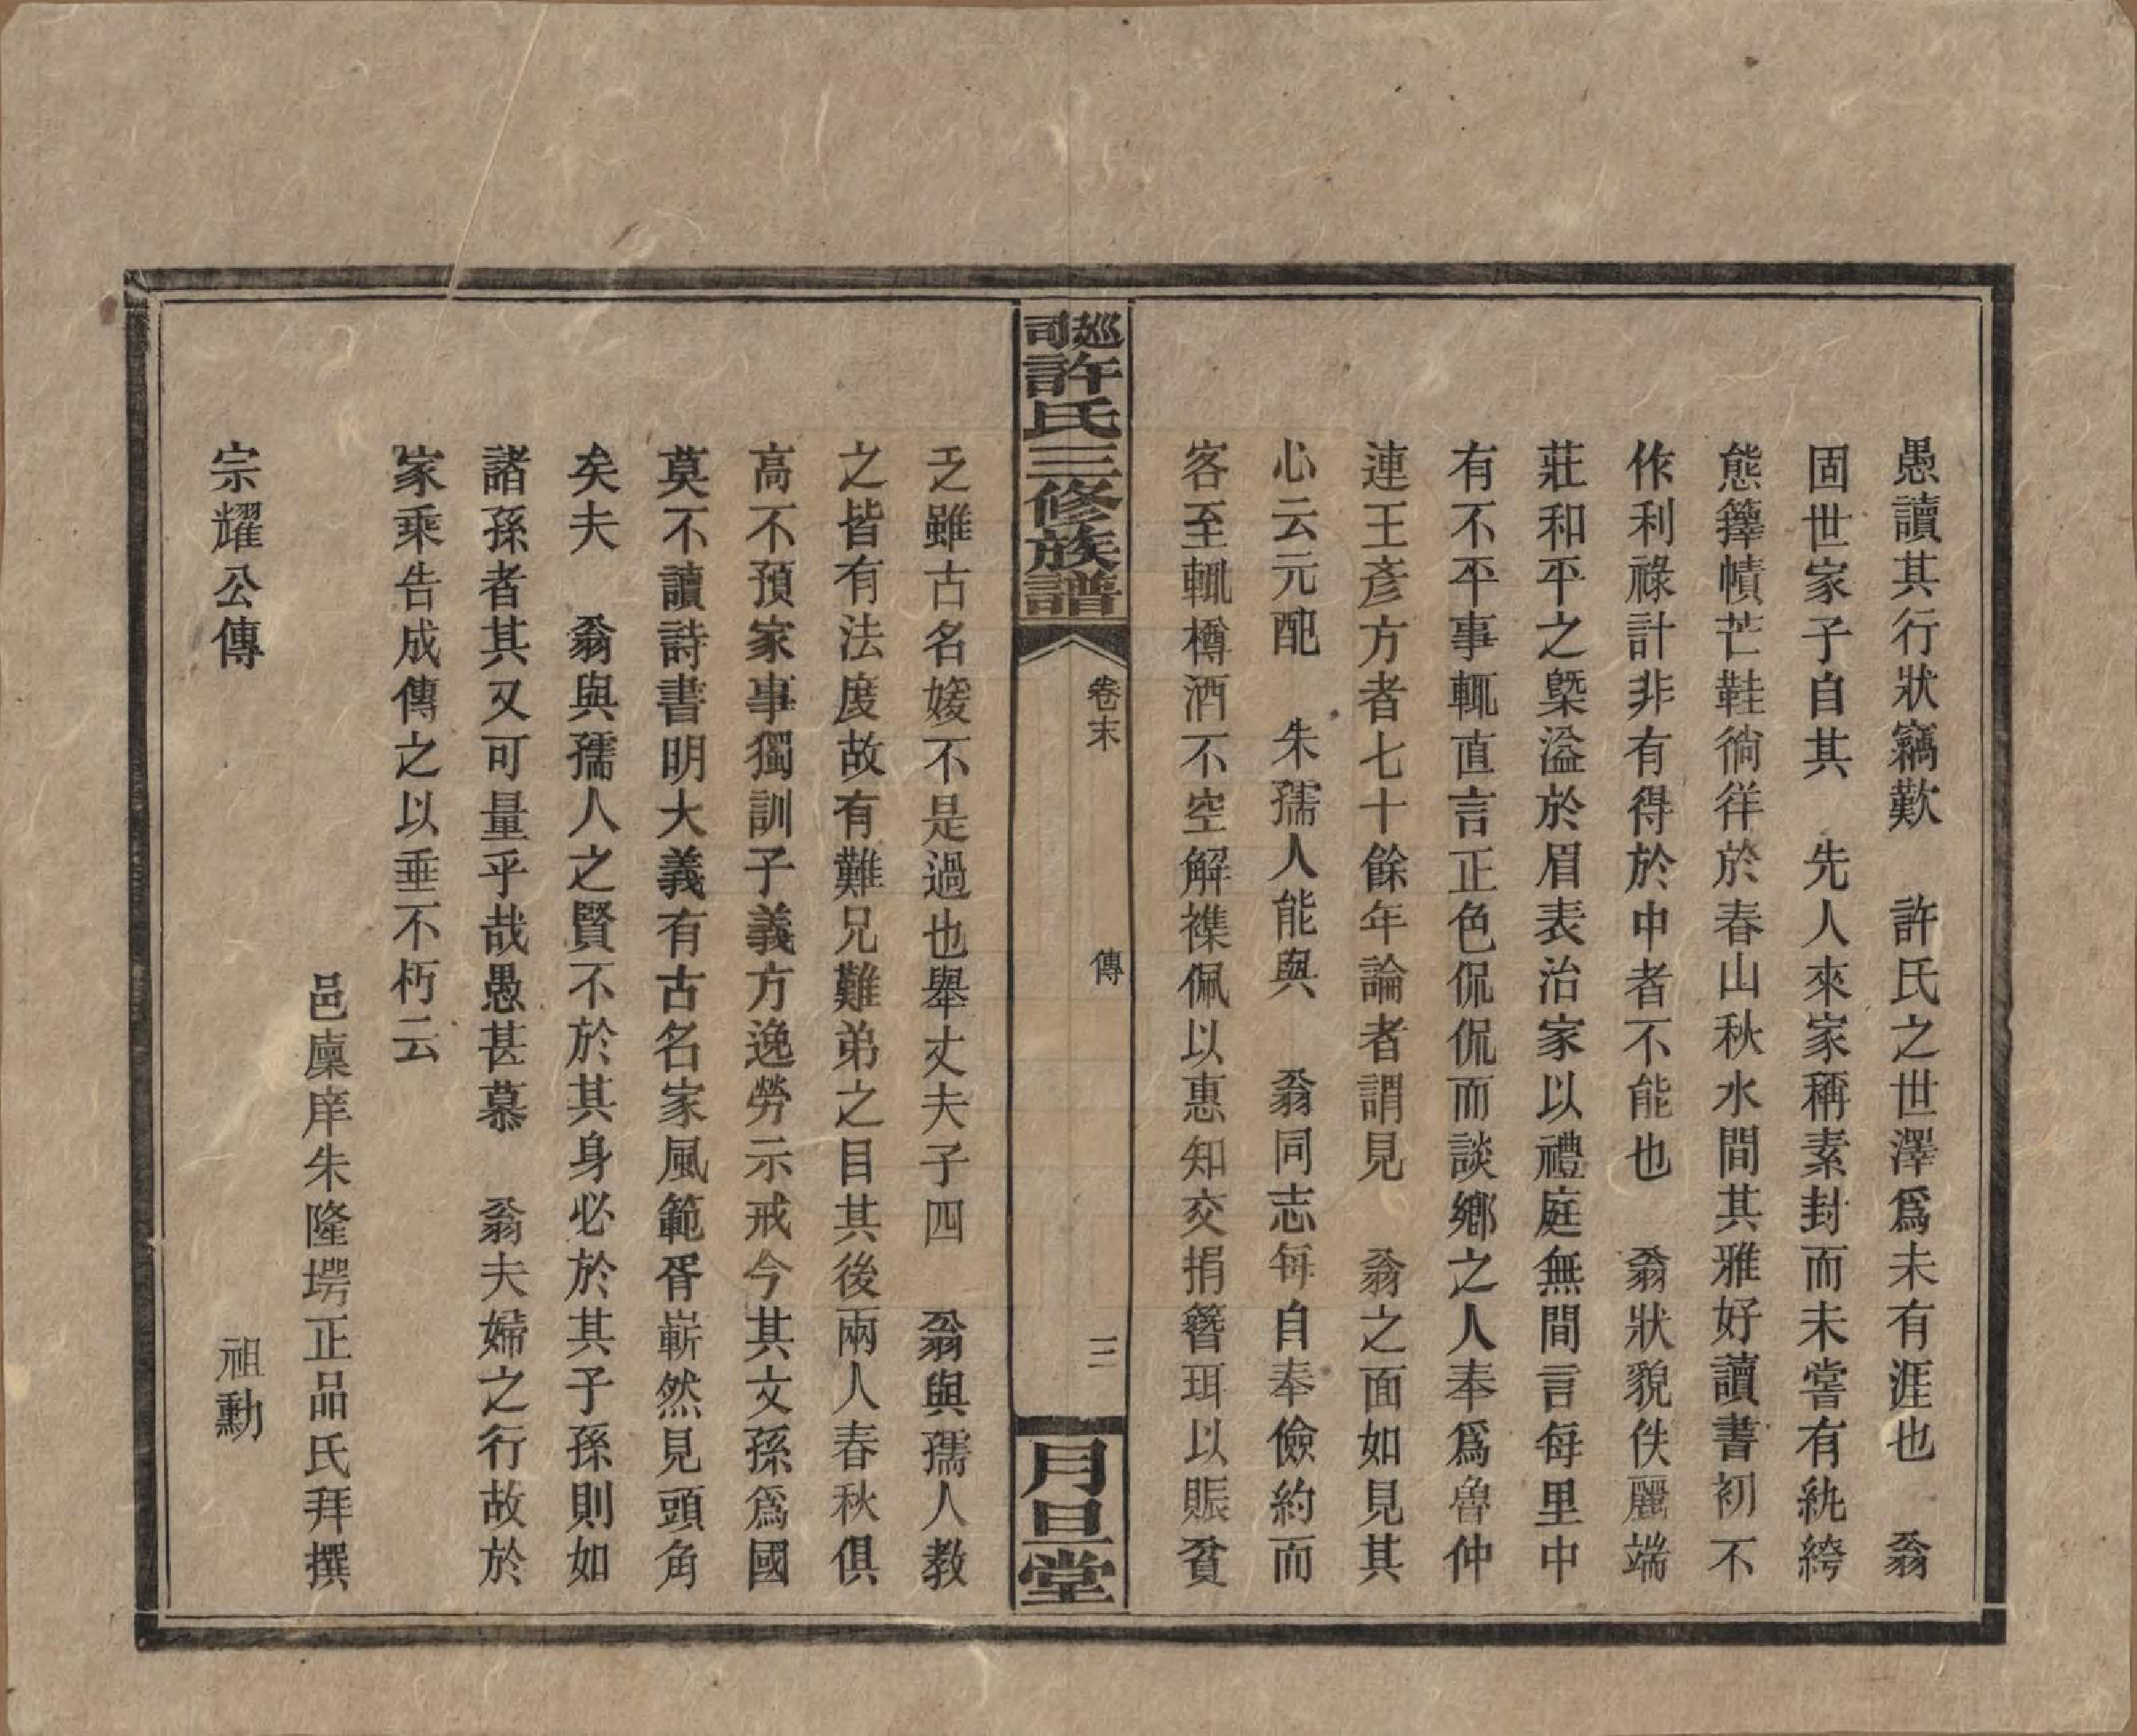 愚讀其行狀竊歎　許氏之世澤爲未有涯也　翁
固世家子自其　先人來家稱素封而未嘗有紈絝
態籜幘芒鞋徜徉於春山秋水間其雅好讀書初不
作利祿計非有得於中者不能也　翁狀貌佚麗端
莊和平之槩溢於眉表治家以禮庭無間言每里中
有不平事輒直言正色侃侃而談鄉之人奉爲魯仲
連王彥方者七十餘年論者謂見　翁之面如見其
心云元配　朱孺人能與　翁同志每自奉儉約而
客至輒樽酒不空解襍佩以惠知交捐簪珥以賑貧
巡司許氏三修族譜
卷末　傳　三
月旦堂
乏雖古名媛不是過也舉丈夫子四　翁與孺人教
之皆有法度故有難兄難弟之目其後兩人春秋俱
高不預家事獨訓子義方逸勞示戒今其文孫爲國
莫不讀詩書明大義有古名家風範胥嶄然見頭角
矣夫　翁與孺人之賢不於其身必於其子孫則如
諸孫者其又可量乎哉愚甚慕　翁夫婦之行故於
家乘告成傳之以垂不朽云
邑廩庠朱隆堮正品氏拜撰
宗耀公傳　祖勳